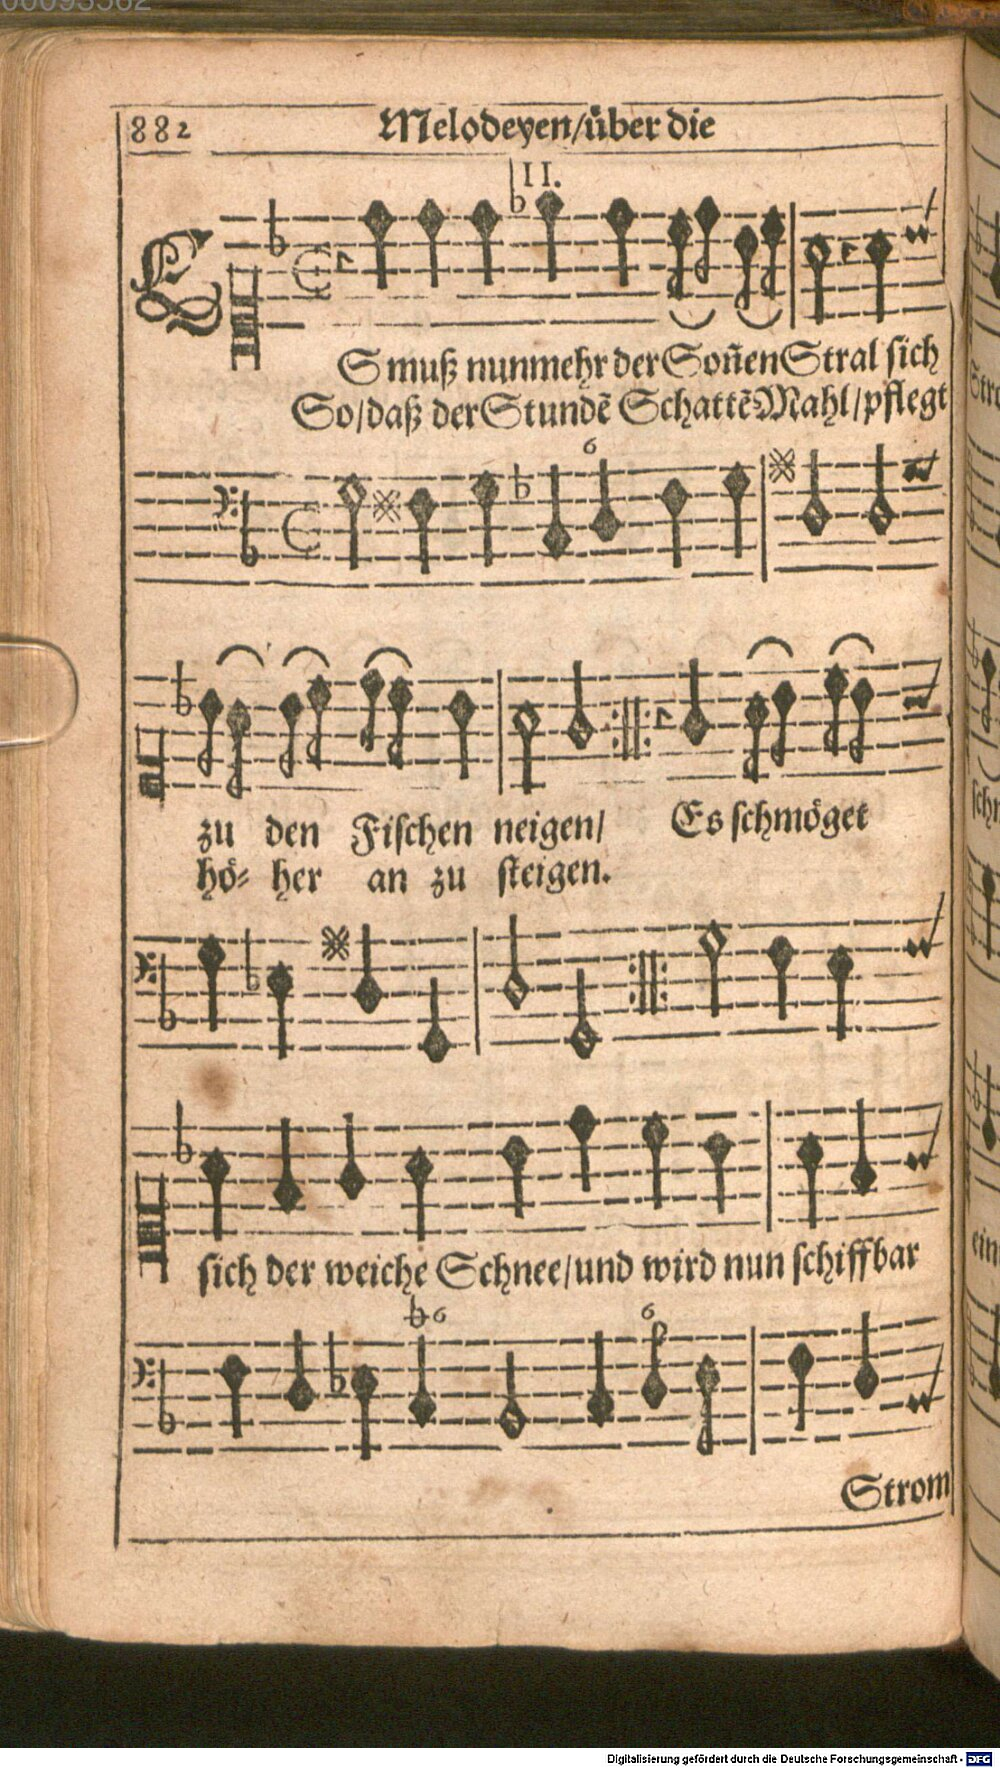 00093562
882 Melodeyen/über die
II.
ES muß nunmehr der Soñen Stral sich
So/daß der Stundẽ Schattẽ-Mahl/pflegt
6
zu den Fischen neigen/ Es schmöget
hö- her an zu steigen.
sich der weiche Schnee/und wird nun schiffbar
6 6
Strom
Digitalisierung gefördert durch die Deutsche Forschungsgemeinschaft - DFG